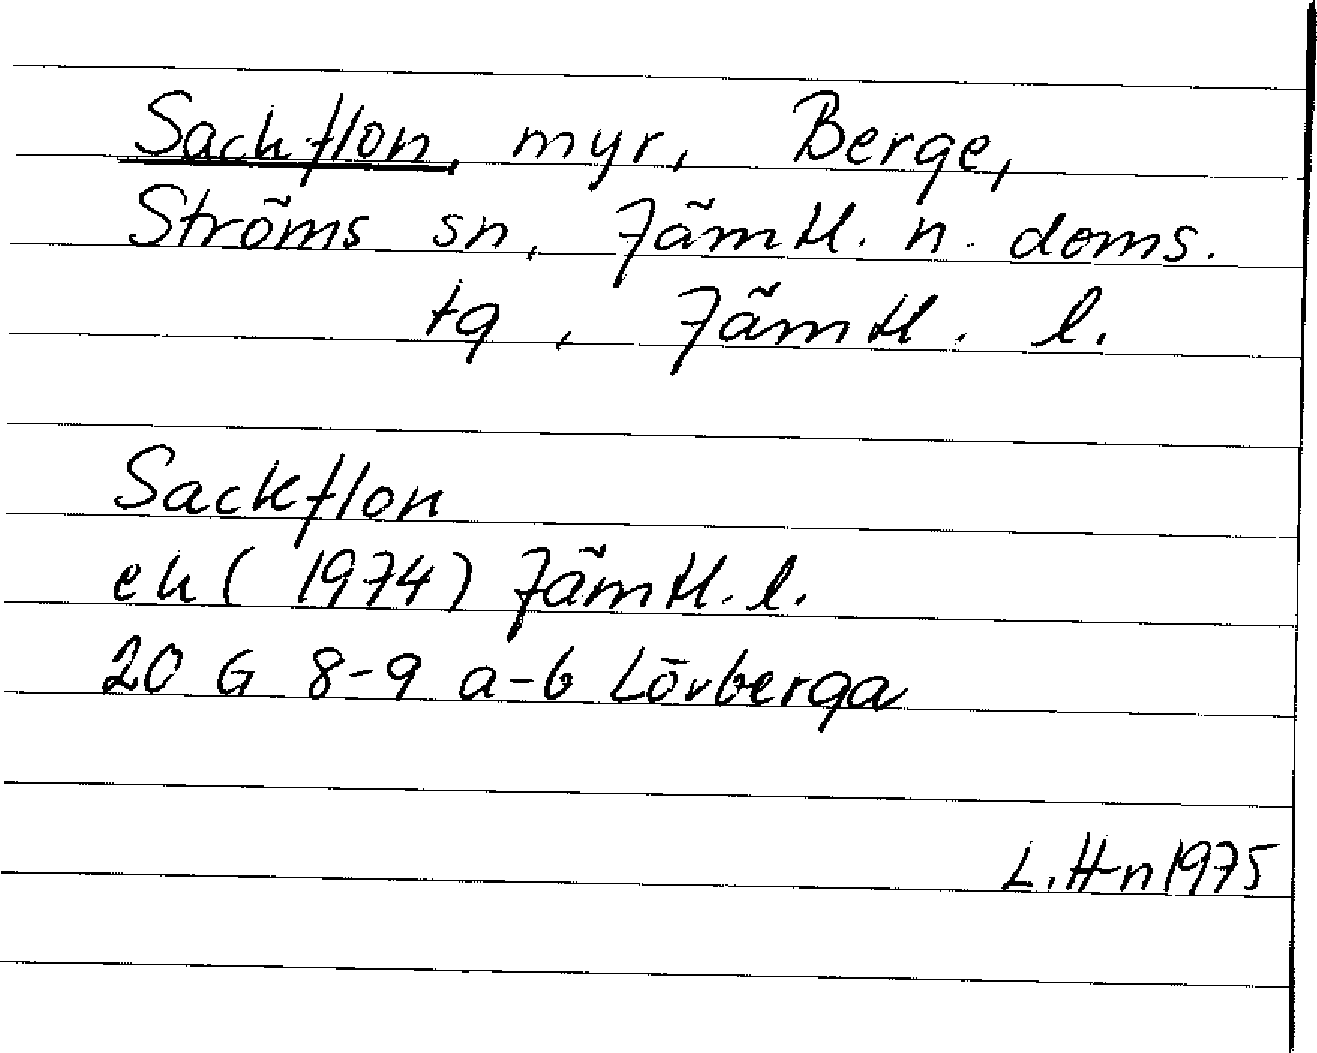 Sackflon, myr, Berge,
Ströms sn, Jämtl. n. doms.
tg, Jämtl. l.
Sackflon
ek (1974) Jämtl. l.
20 G 8-9 a-b Lövberga
L. H-n 1975